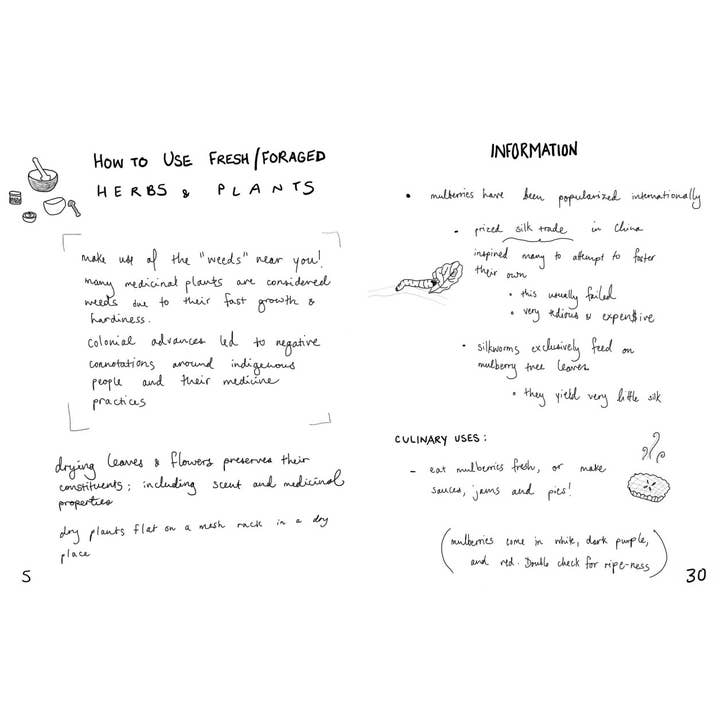 HOW TO USE FRESH/FORAGED
HERBS & PLANTS
make use of the "weeds" near you!
many medicinal plants are considered
weeds due to their fast growth &
hardiness.
colonial advances led to negative
connotations around indigenous
people and their medicine
practices
drying leaves & flowers preserves their
constituents; including scent and medicinal
properties
dry plants flat on a mesh rack in a dry
place
5
INFORMATION
• mulberries have been popularized internationally
- prized silk trade in China
inspired many to attempt to foster
their own
• this usually failed
• very tedious & expen$ive
• silkworms exclusively feed on
mulberry tree leaves
• they yield very little silk
CULINARY USES:
- eat mulberries fresh, or make
sauces, jams and pies!
(mulberries come in white, dark purple,
and red. Double check for ripe-ness)
30